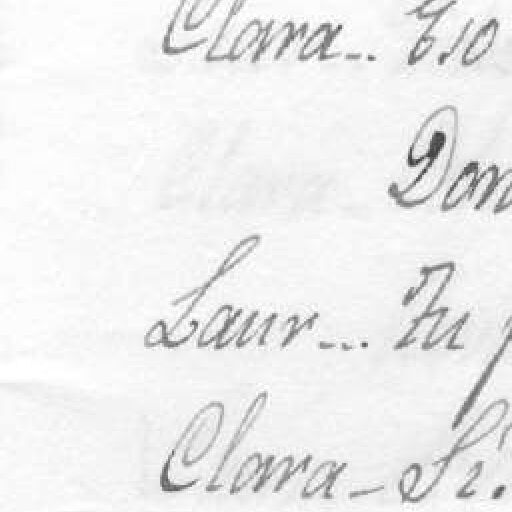 Clara.. Tio
Don
Laur... Tu
Clara- Si.